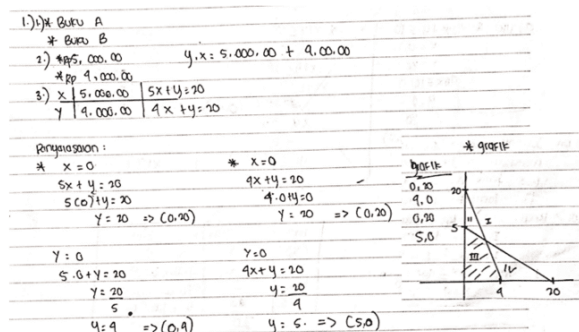 1.) 1) * Buku A
* Buku B
2.) * Rp 5.000.00 y.x = 5.000.00 + 4.00.00
* Rp 4.000.00
3.) x | 5.000.00 | 5x + y = 20
y | 4.000.00 | 4x + y = 20
Penyelesaian :
* x = 0
5x + y = 20
5(0) + y = 20
y = 20 => (0,20)
* x = 0
4x + y = 20
4.0 + y = 0
y = 20 => (0,20)
y = 0
5.0 + y = 20
y = 20/5
y = 4 => (0,4)
y = 0
4x + y = 20
y = 20/4
y = 5. => (5,0)
* grafik
grafik
0,20
4.0
0,20
5,0
20
5
II
I
III
IV
4
20